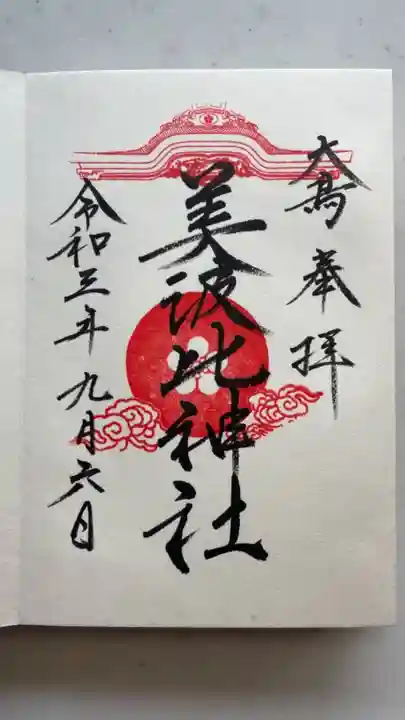 大高 奉拝
美波比神社
令和三年九月六日